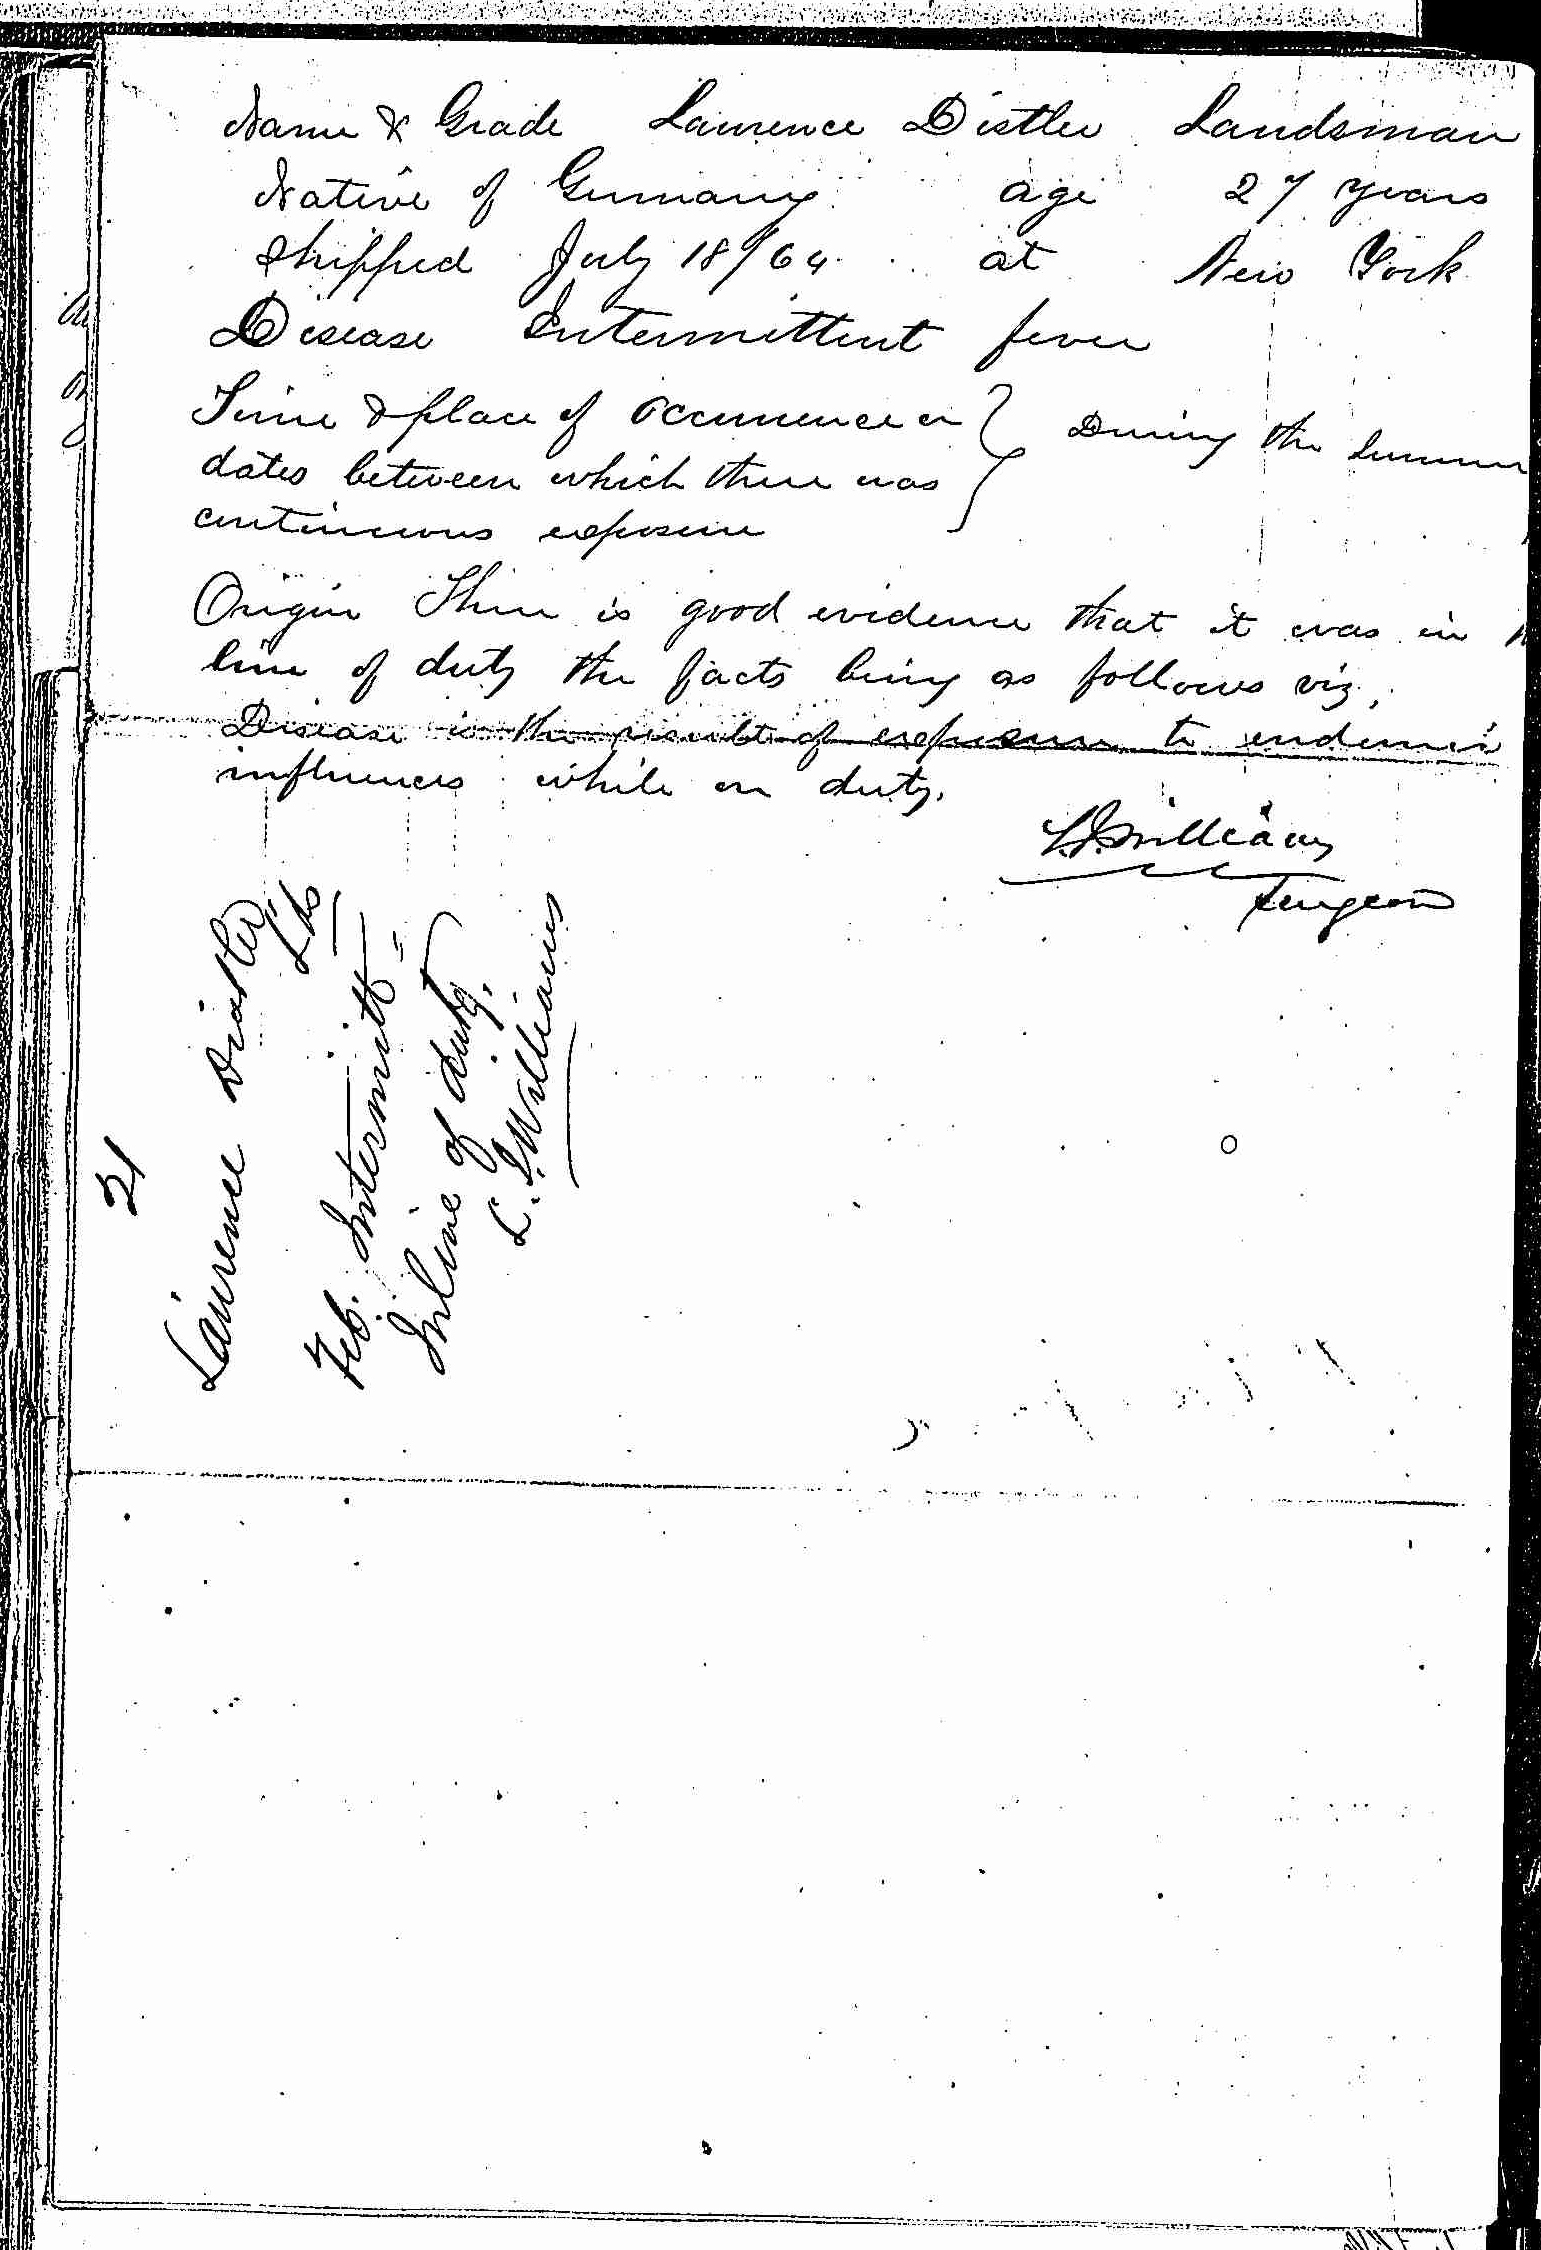 Name & Grade Laurence Distler Landsman
Native of Germany age 27 years
Shipped July 18/64 at New York
Disease Intermittent fever
Time & place of occurrence or } During the Summer
dates between which there was
continuous exposure
Origin There is good evidence that it was in
line of duty the facts being as follows viz,
Disease is the result of exposure to endemic
influences while on duty.
L.J. Williams
Surgeon
21
Laurence Distler
Lds
Feb. Intermitt
In line of duty.
L.J. Williams